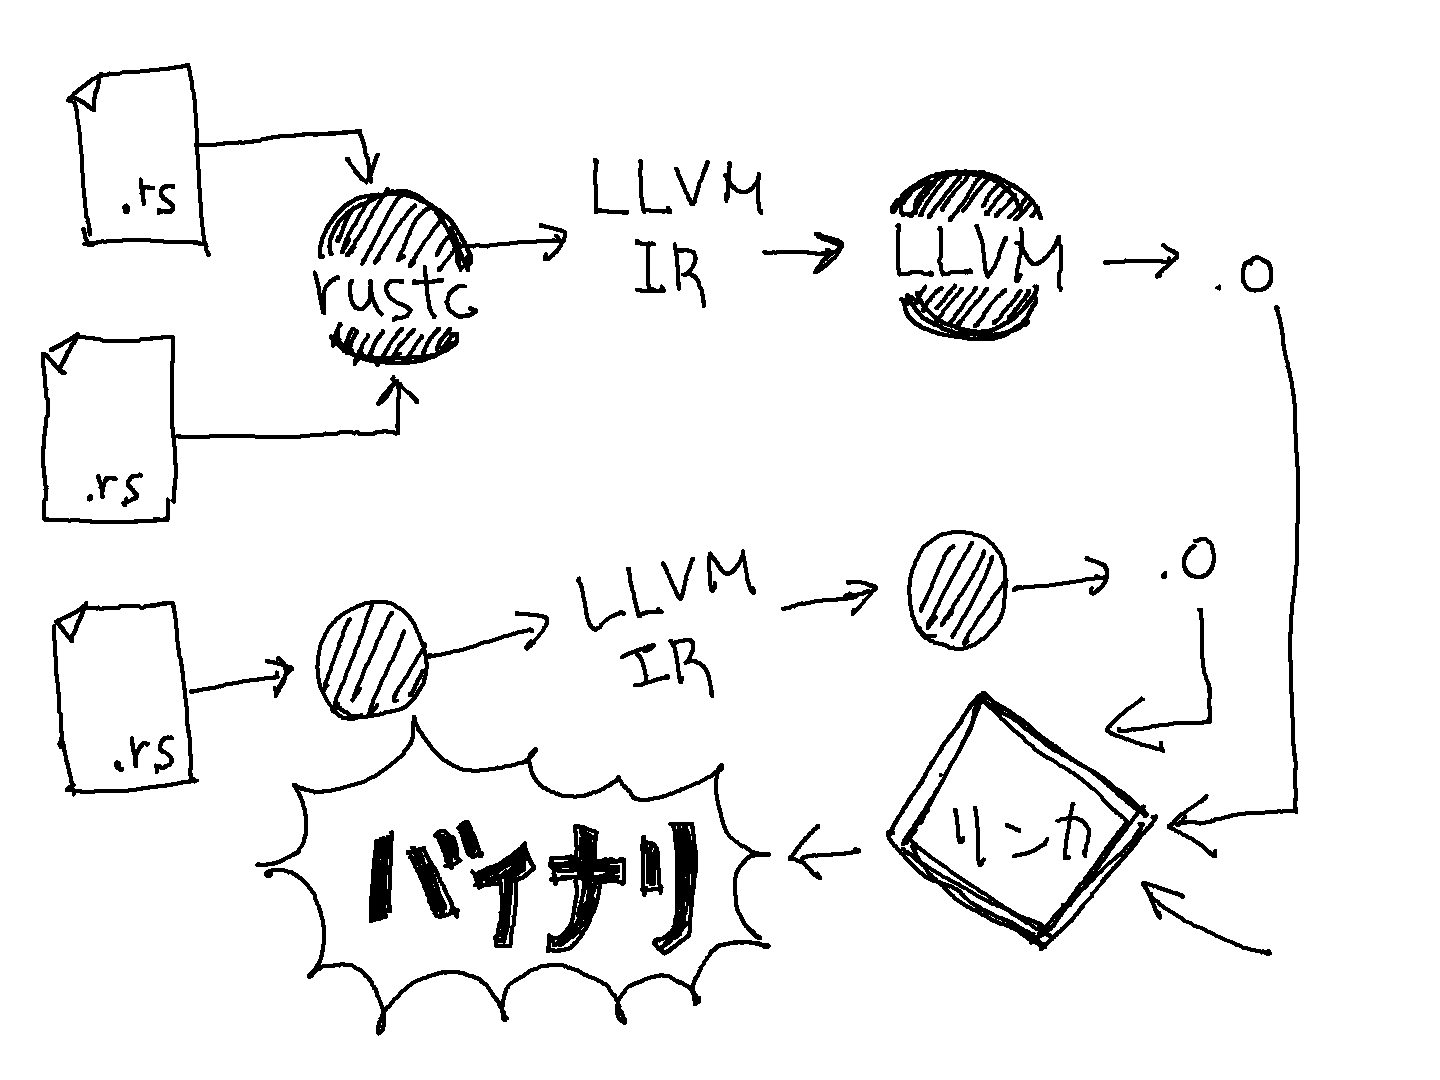 .rs
rustc
LLVM
IR
LLVM
.o
.rs
.rs
LLVM
IR
.o
リンカ
バイナリ